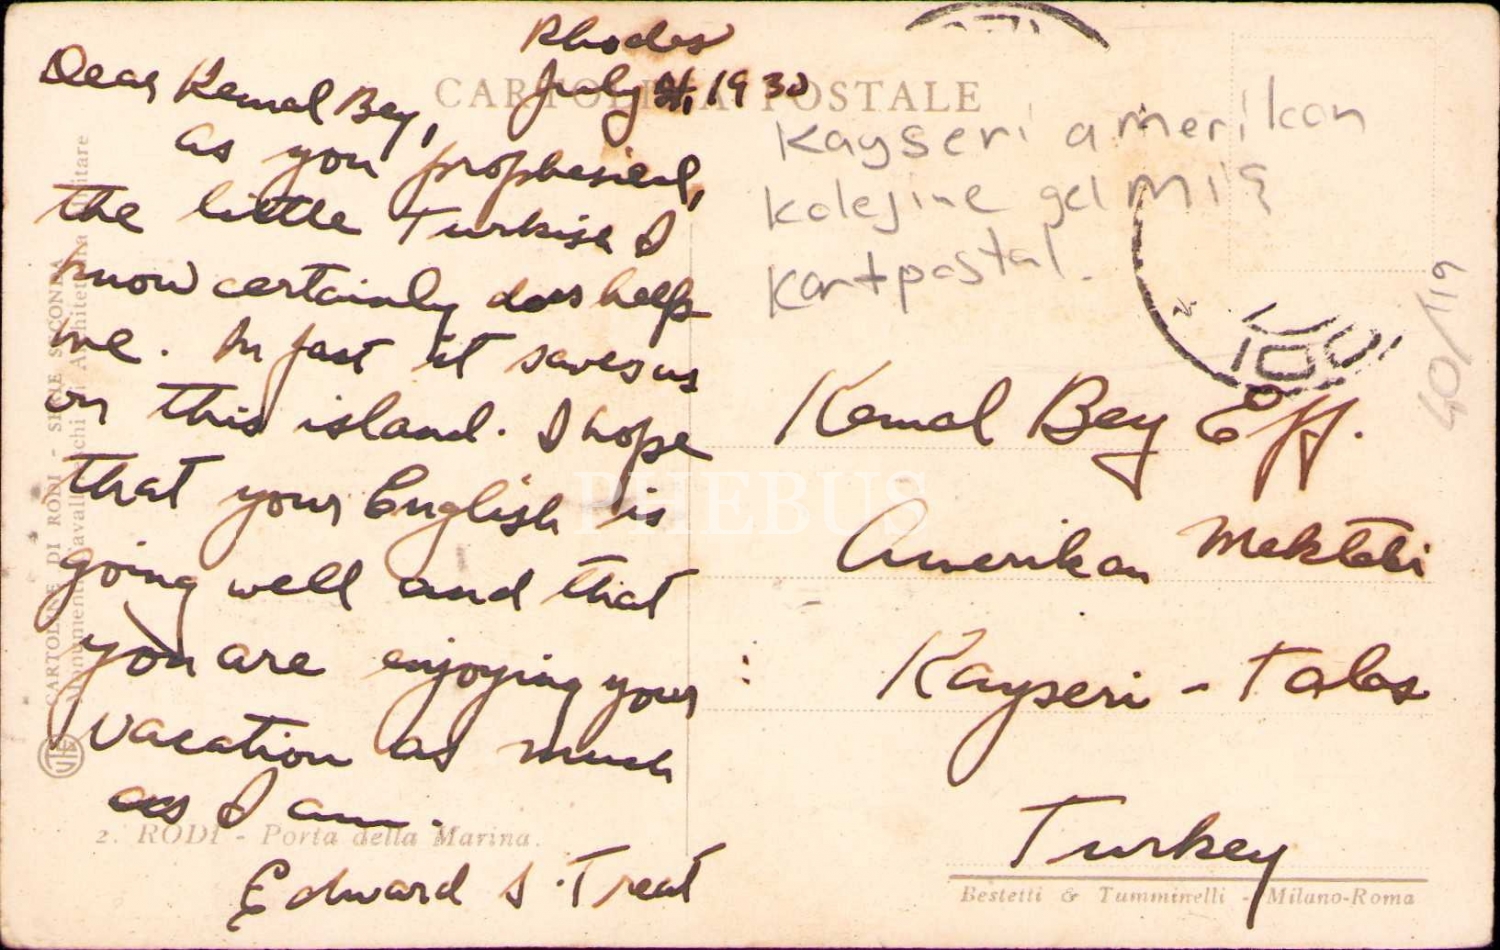 Rhodes
July 21, 1930
Dear Kemal Bey,
as you prophesied,
the little Turkish I
know certainly does help
me. In fact it saves us
on this island. I hope
that your English is
going well and that
you are enjoying your
vacation as much
as I am.
Edward S. Treat
CARTOLINA POSTALE
Kayseri amerikan
kolejine gelmiş
kartpostal.
40/119
Kemal Bey Eff.
Amerikan Mektebi
Kayseri - Talas
Turkey
2. RODI - Porta della Marina.
Bestetti & Tumminelli - Milano-Roma
CARTOLINE DI RODI - SERIE SECONDA
Monumenti Cavallereschi Architettura Militare
PHEBUS